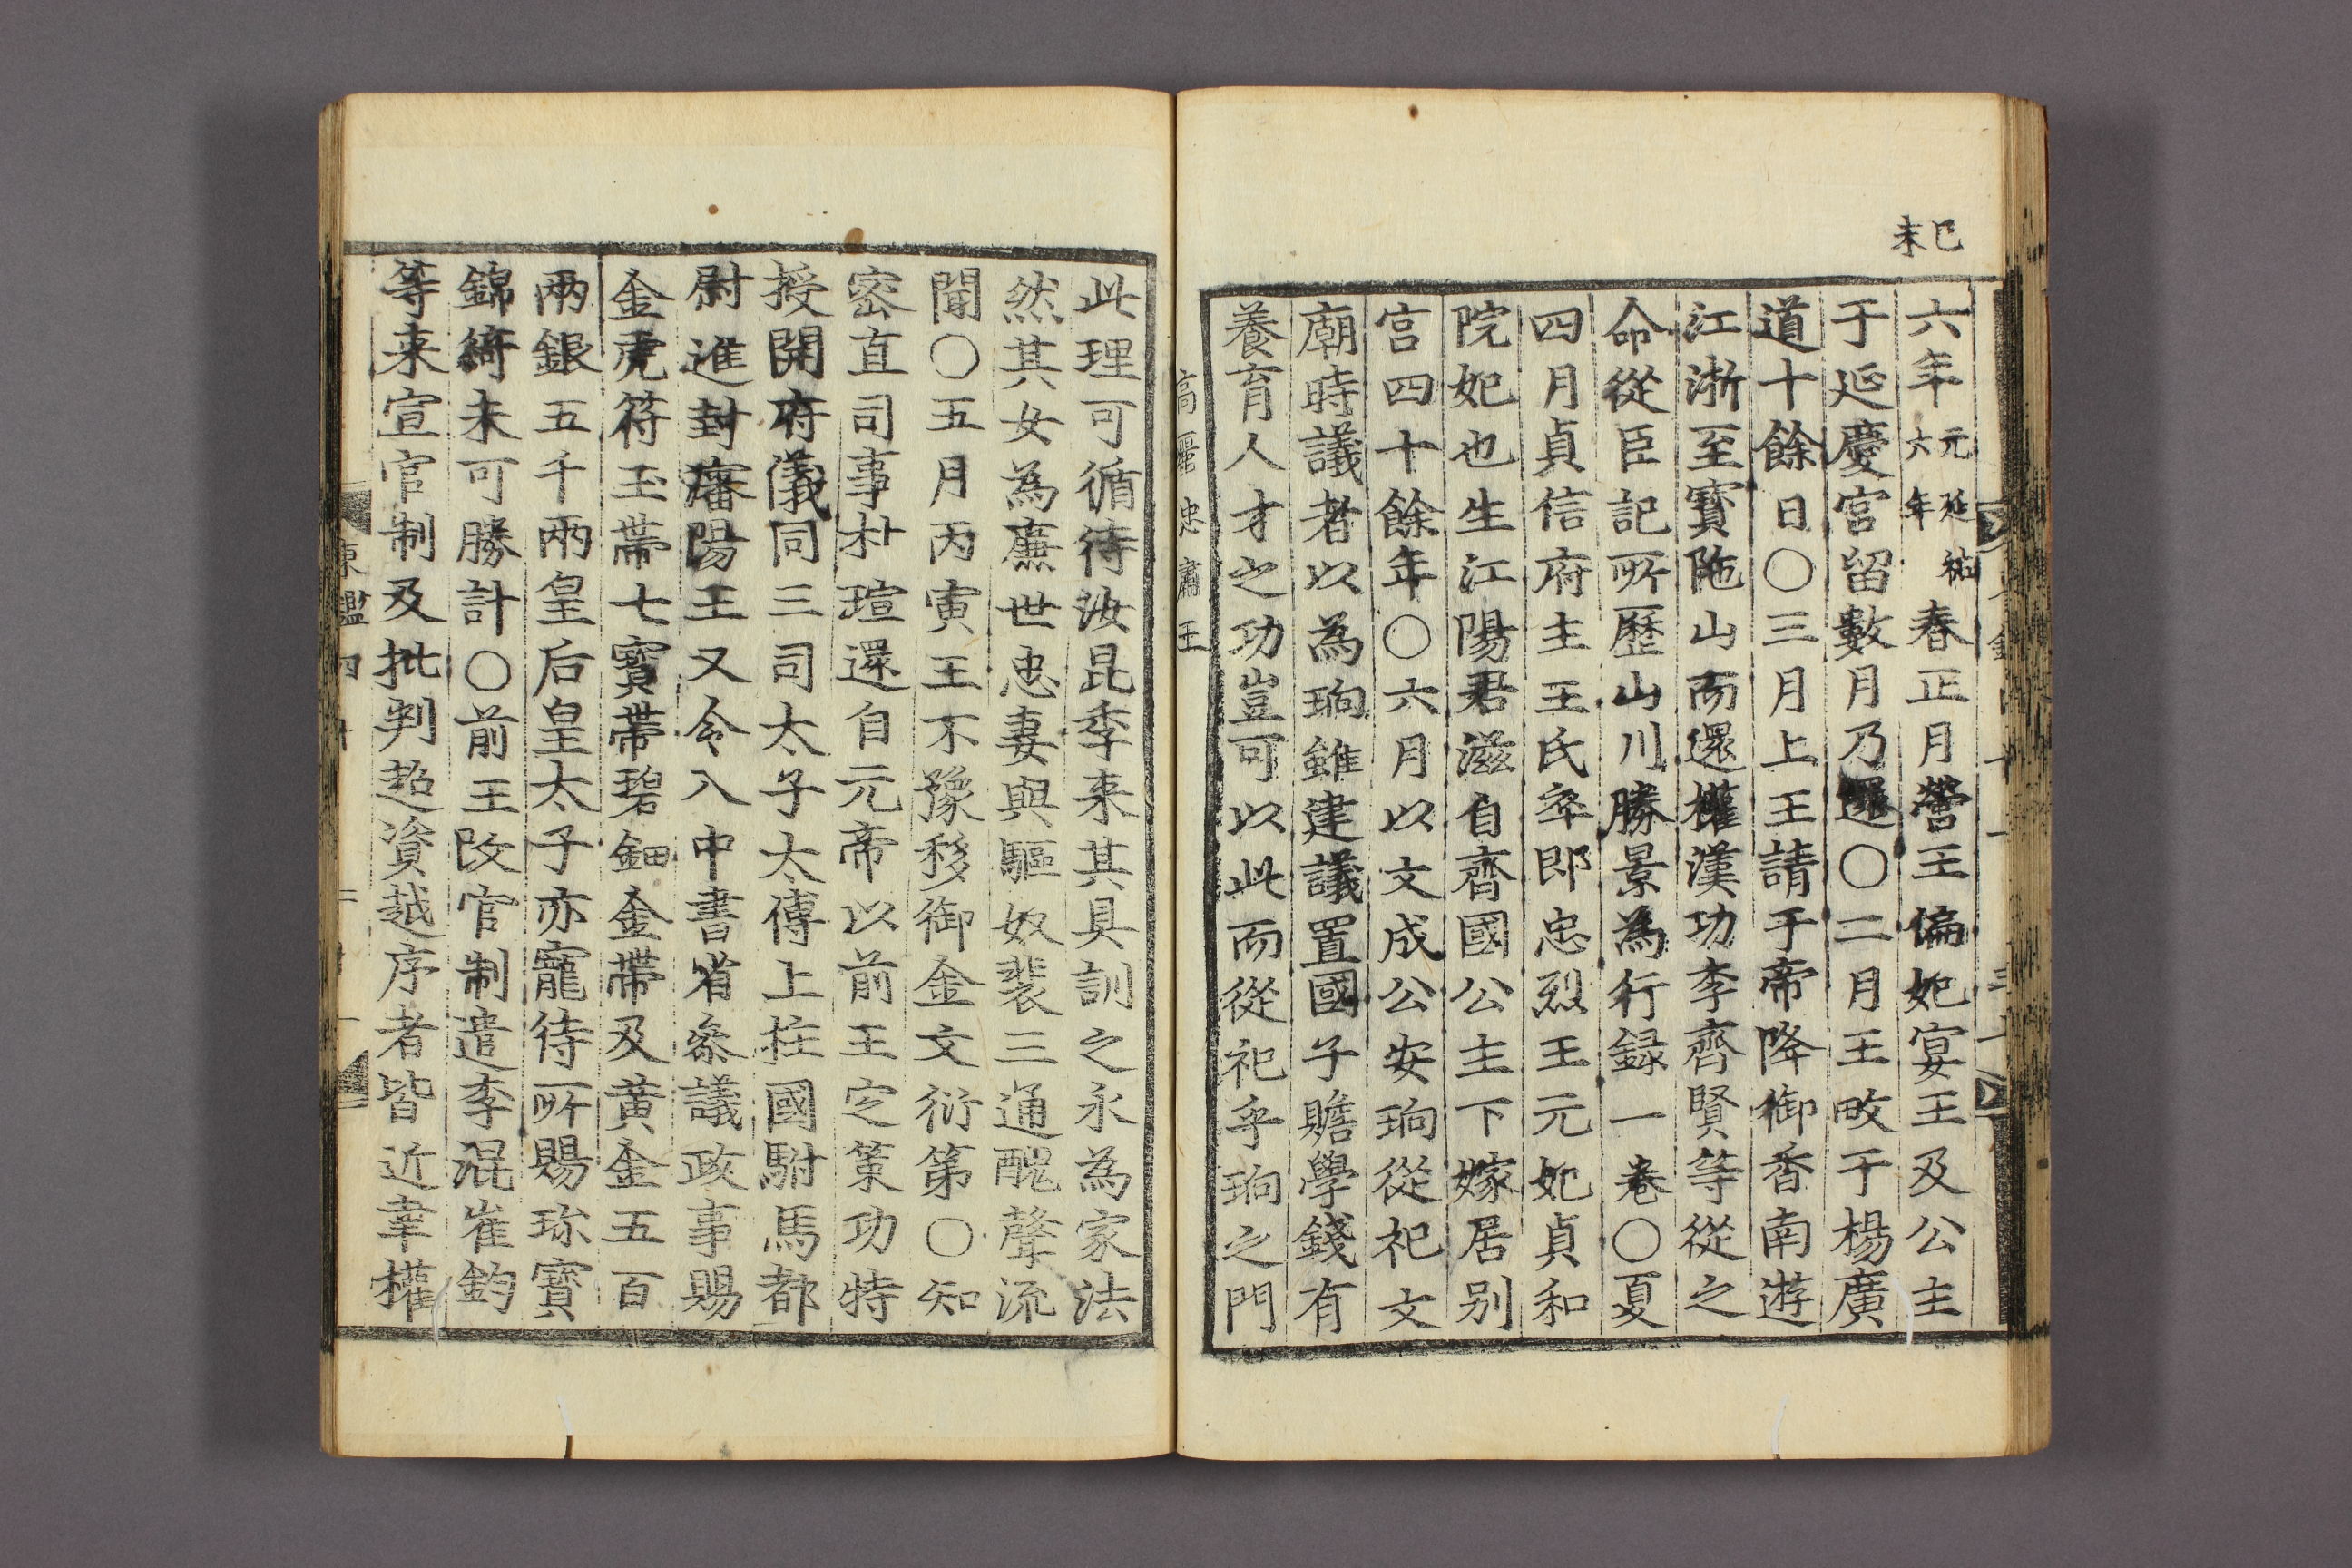 己未
六年元延祐六年春正月營王偏妃宴王及公主
于延慶宮留數月乃還○二月王畋于楊廣
道十餘日○三月上王請于帝降御香南遊
江浙至寶陁山而還權漢功李齊賢等從之
命從臣記所歷山川勝景為行録一卷○夏
四月貞信府主王氏卒即忠烈王元妃貞和
院妃也生江陽君滋自齊國公主下嫁居别
宮四十餘年○六月以文成公安珦從祀文
廟時議者以為珦雖建議置國子贍學錢有
養育人才之功豈可以此而從祀乎珦之門
高麗忠肅王
此理可循待汝昆季来其具訓之永為家法
然其女為廉世忠妻與驅奴裴三通醜聲流
聞○五月丙寅王不豫移御金文衍第○知
密直司事朴瑄還自元帝以前王定策功特
授開府儀同三司太子太傅上柱國駙馬都
尉進封瀋陽王又令入中書省叅議政事賜
金虎符玉帶七寶帶碧鈿金帶及黄金五百
兩銀五千兩皇后皇太子亦寵待所賜珎寶
錦綺未可勝計○前王改官制遣李混崔鈞
等来宣官制及批判超資越序者皆近幸權
東鑑四十